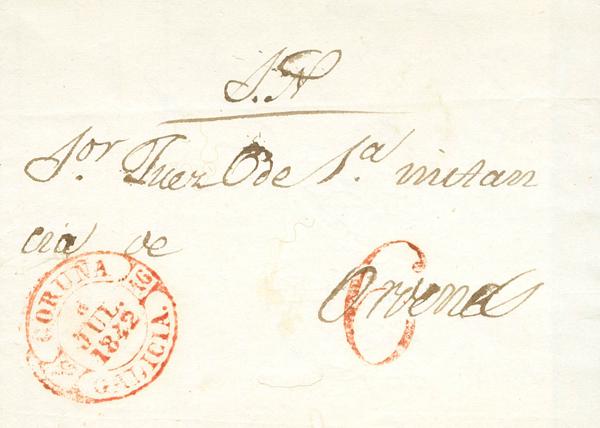 S. N
Sor. Juez de 1.a instan
cia de
Ordenes
CORUÑA
4
JUL.
1842
GALICIA